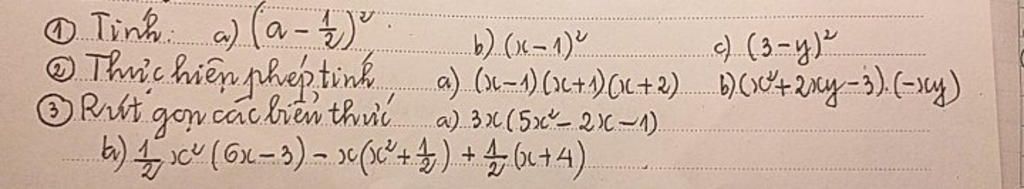 ① Tính: a) (a - 1/2)² b) (x-1)² c) (3-y)²
② Thực hiện phép tính a) (x-1)(x+1)(x+2) b) (x²+2xy-3).(-xy)
③ Rút gọn các biểu thức a) 3x(5x²-2x-1)
b) 1/2 x² (6x-3) - x(x²+1/2) + 1/2 (x+4)